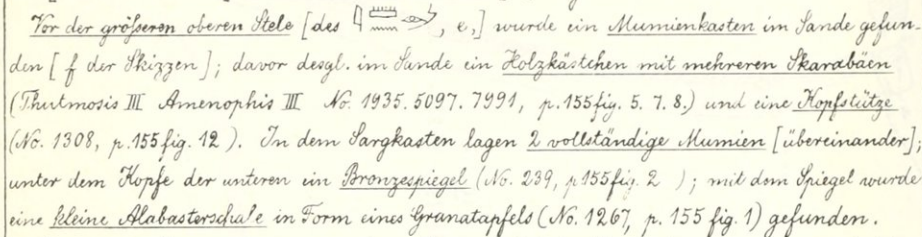 Vor der größeren oberen Stele [des 𓇋𓏠𓈖𓂝, e,] wurde ein Mumienkasten im Sande gefun-
den [f der Skizzen]; davor desgl. im Sande ein Holzkästchen mit mehreren Skarabäen
(Thutmosis III Amenophis III No. 1935. 5097. 7991, p. 155 fig. 5. 7. 8.) und eine Kopfstütze
(No. 1308, p. 155 fig. 12 ). In dem Sargkasten lagen 2 vollständige Mumien [übereinander];
unter dem Kopfe der unteren ein Bronzespiegel (No. 239, p 155 fig. 2 ); mit dem Spiegel wurde
eine kleine Alabasterschale in Form eines Granatapfels (No. 1267, p. 155 fig. 1) gefunden.